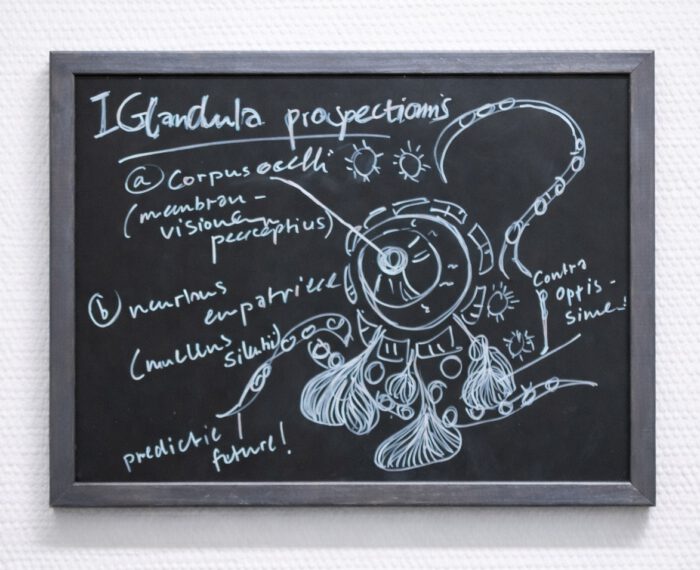 I Glandula prospectionis
(a) Corpus ocelli
(membran-
visionem
perceptius)
(b) neurinus
empatriece
(nucleus
silentii)
predictie
future!
Contra
Optis-
simens